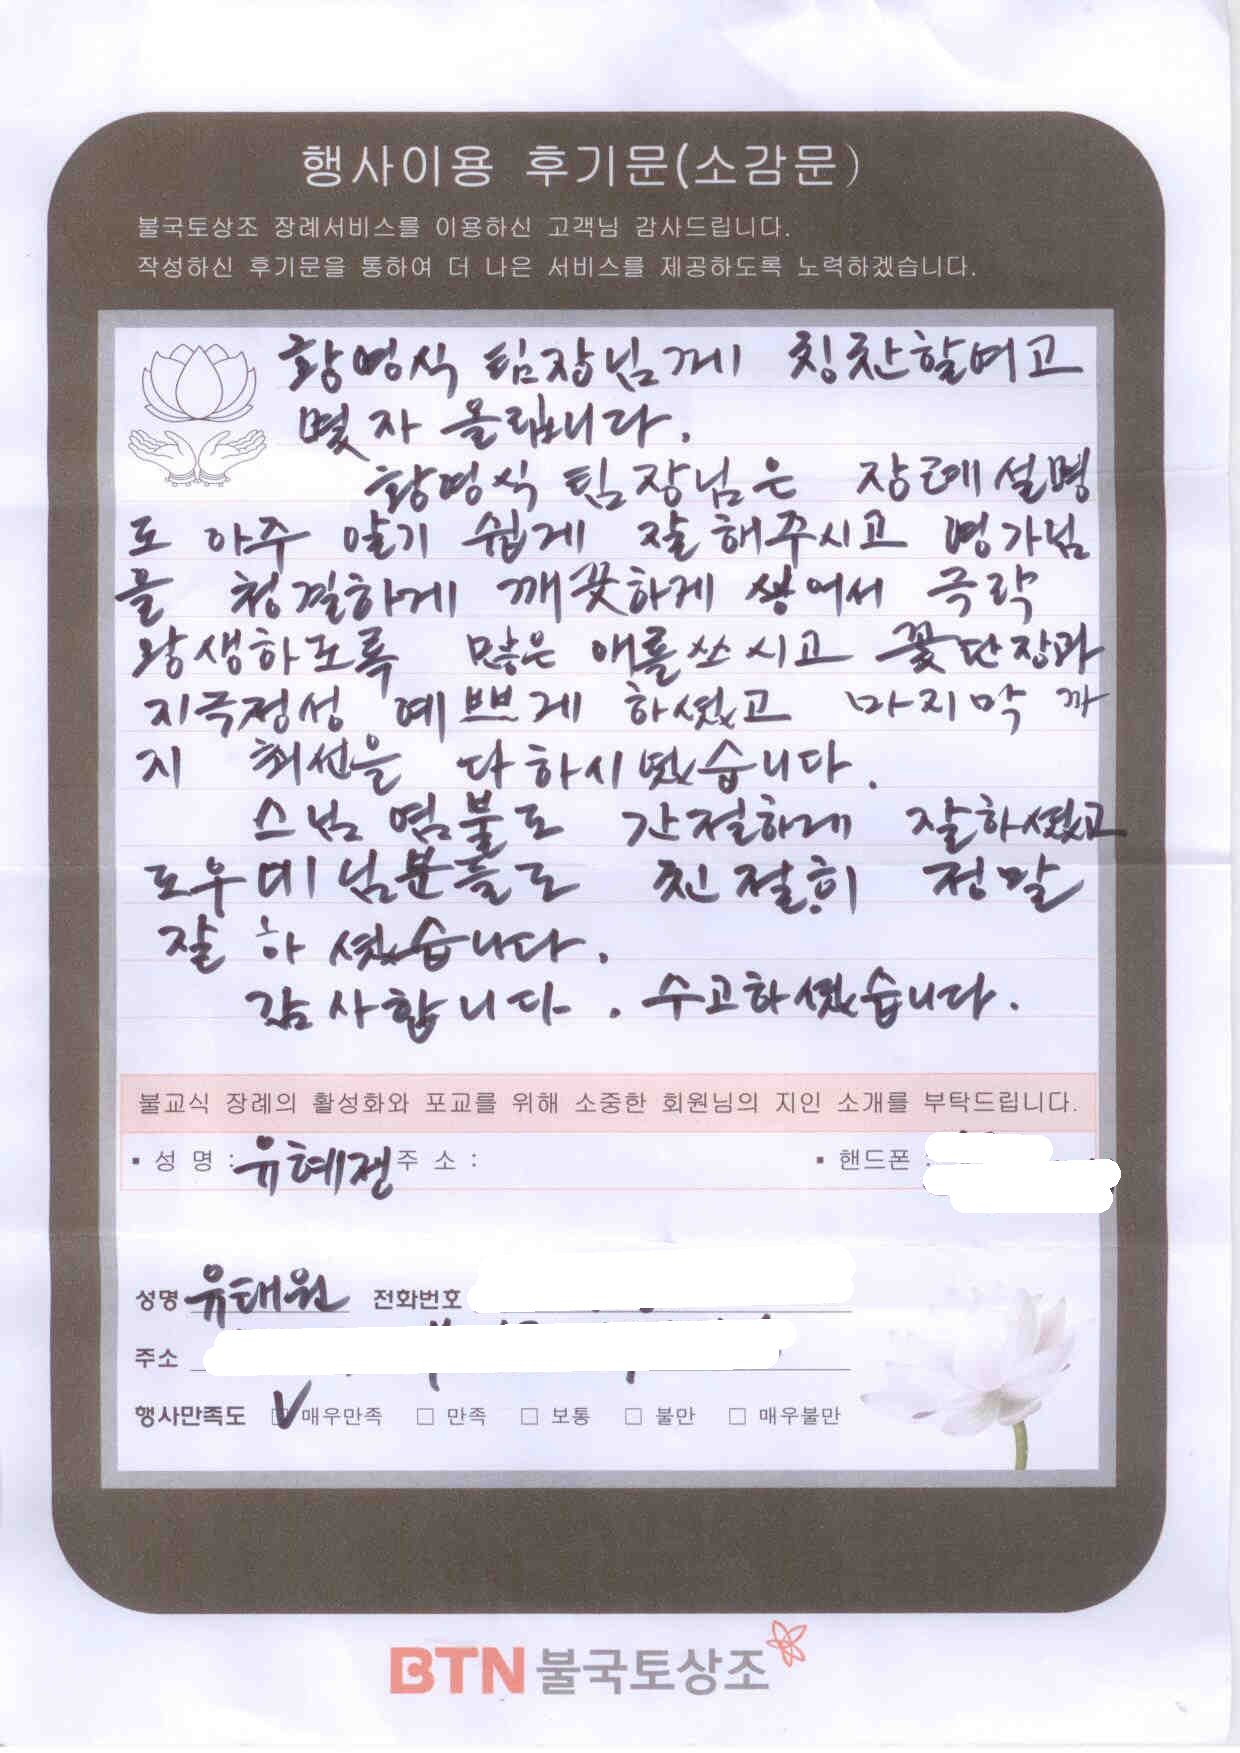 행사이용 후기문(소감문)
불국토상조 장례서비스를 이용하신 고객님 감사드립니다.
작성하신 후기문을 통하여 더 나은 서비스를 제공하도록 노력하겠습니다.
황영식 팀장님께 칭찬할여고
몇자 올립니다.
황영식 팀장님은 장례설명
도 아주 알기 쉽게 잘해주시고 영가님
을 청결하게 깨끗하게 씻어서 극락
왕생하도록 많은 애를쓰시고 꽃단장과
지극정성 예쁘게 하셨고 마지막 까
지 최선을 다하시였습니다.
스님 염불도 간절하게 잘하셨고
도우미님분들도 친절히 정말
잘 하셨습니다.
감사합니다. 수고하셨습니다.
불교식 장례의 활성화와 포교를 위해 소중한 회원님의 지인 소개를 부탁드립니다.
▪ 성 명 : 유혜잰 주 소 : ▪ 핸드폰 :
성명 유태원 전화번호
주소
행사만족도 V 매우만족 □ 만족 □ 보통 □ 불만 □ 매우불만
BTN 불국토상조